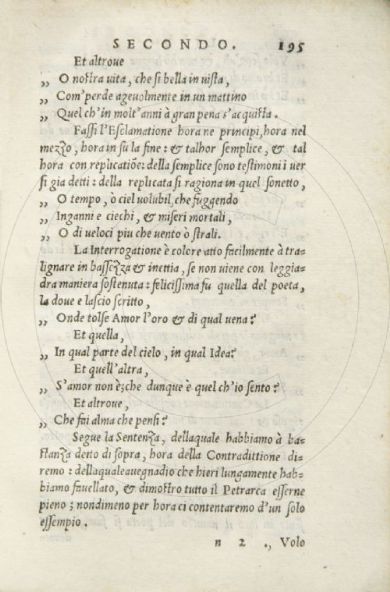 SECONDO. 195
Et altroue
„ O noſtra uita, che ſi bella in uiſta,
„ Com'perde ageuolmente in un mattino
„ Quel ch'in molt'anni à gran pena s'acquiſta.
Faſſi l'Eſclamatione hora ne principi, hora nel
mezzo, hora in ſu la fine: & talhor ſemplice, & tal
hora con replicatiõe: della ſemplice ſono teſtimoni i uer
ſi gia detti: della replicata ſi ragiona in quel ſonetto,
„ O tempo, ò ciel uolubil, che fuggendo
„ Inganni e ciechi, & miſeri mortali,
„ O di ueloci piu che uento ò ſtrali.
La Interrogatione è colore atto facilmente à tra-
lignare in baſſezza & inettia, ſe non uiene con leggia-
dra maniera ſoſtenuta: feliciſſima fu quella del poeta,
la doue e laſcio ſcritto,
„ Onde tolſe Amor l'oro & di qual uena?
Et quella,
„ In qual parte del cielo, in qual Idea?
Et quell'altra,
„ S'amor non è; che dunque è quel ch'io ſento?
Et altroue,
„ Che fai alma che penſi?
Segue la Sentenza, dellaquale habbiamo à ba-
ſtanza detto di ſopra, hora della Contradittione di-
remo: dellaquale auegnadio che hieri lungamente hab-
biamo fauellato, & dimoſtro tutto il Petrarca eſſerne
pieno; nondimeno per hora ci contentaremo d'un ſolo
eſſempio.
n 2 „ Volo